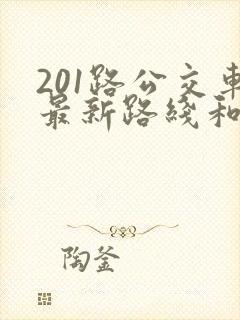 201路公交車
最新路綫和
陶釜